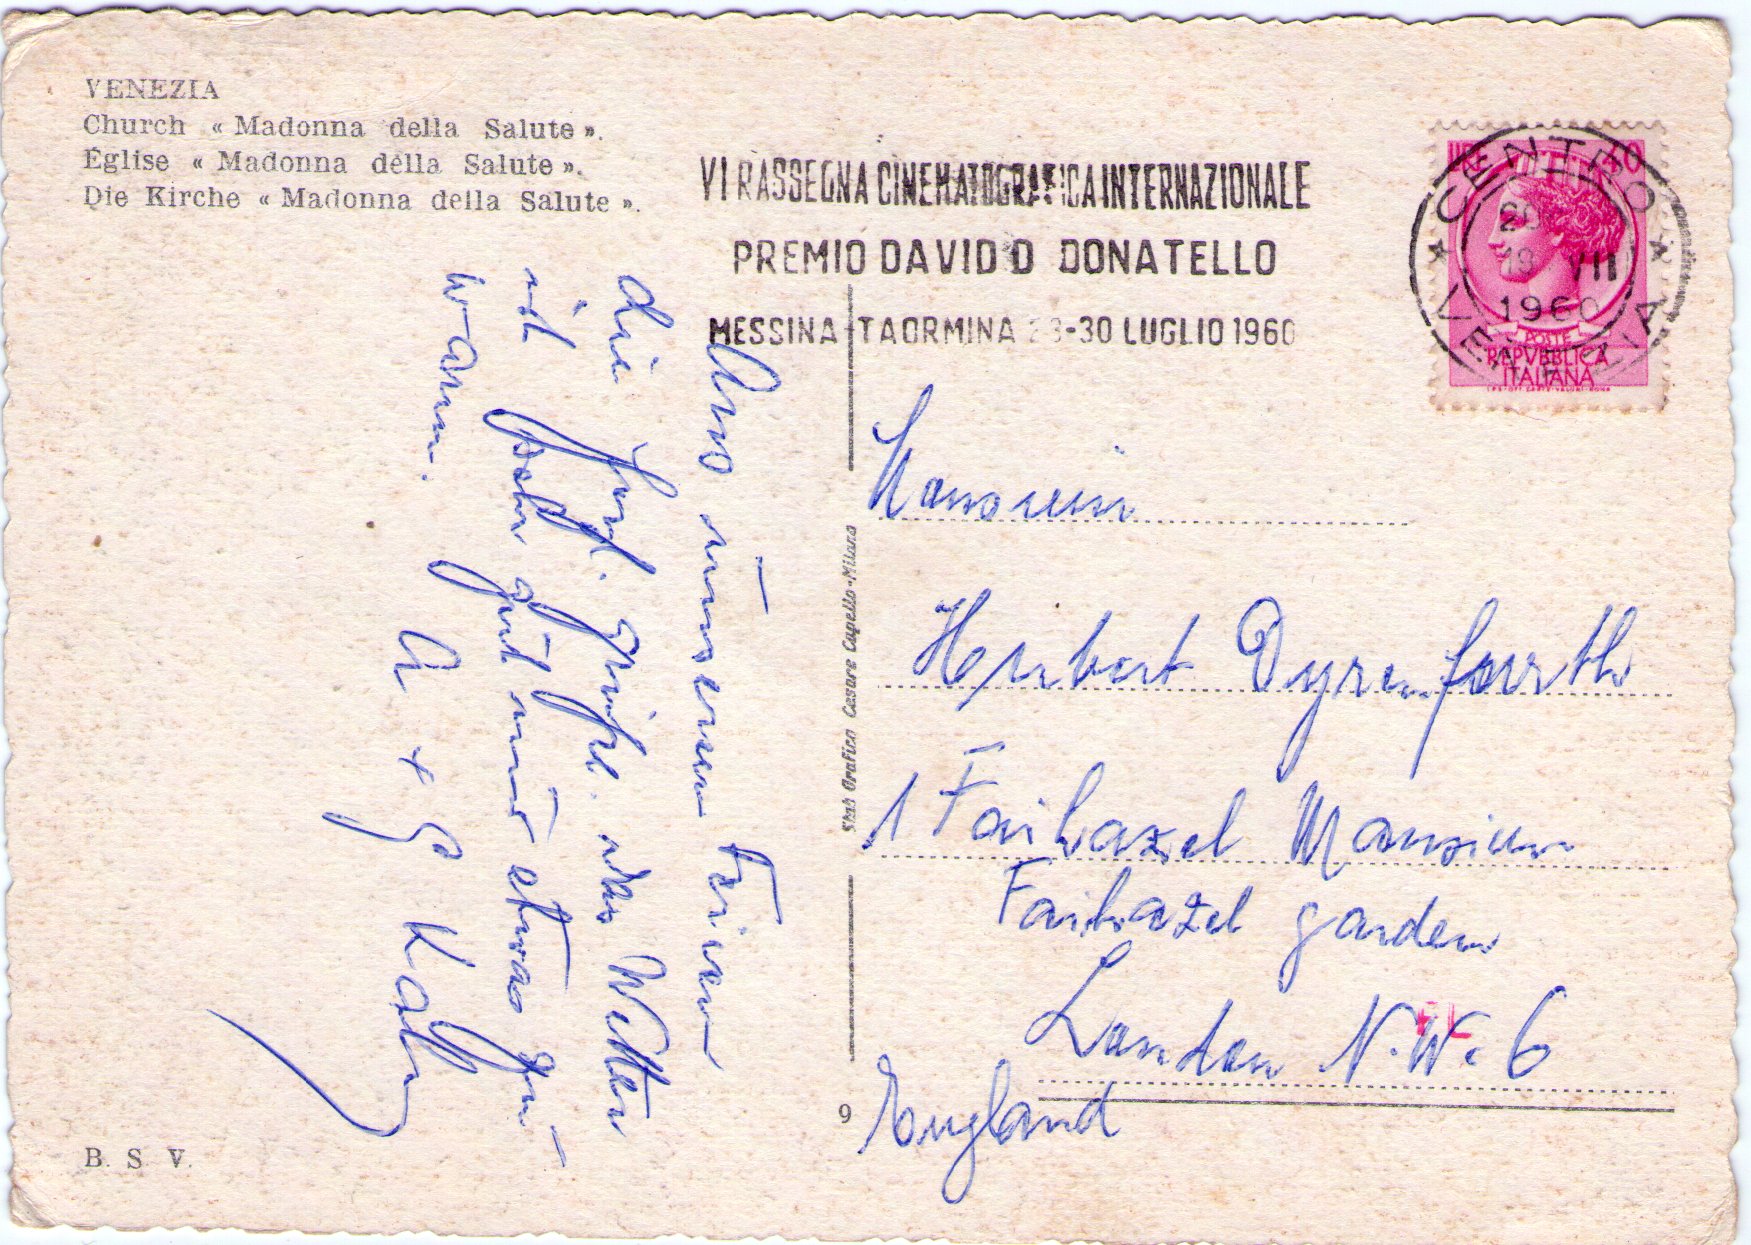 VENEZIA
Church « Madonna della Salute ».
Église « Madonna della Salute ».
Die Kirche « Madonna della Salute ».
VI RASSEGNA CINEMATOGRAFICA INTERNAZIONALE
PREMIO DAVID D DONATELLO
MESSINA-TAORMINA 23-30 LUGLIO 1960
CENTRO
VENEZIA
19 VII
1960
POSTE
REPVBBLICA
ITALIANA
Aus unseren Ferien
die herzl. Grüße. das Wetter
ist sehr gut und etwas zu
warm.
Monsieur
Heribert Dyrenfurth
1 Faihazel Mansion
Faihazel garden
London N.W. 6
England
Stab Grafico Cesare Capello - Milano
9
B. S. V.